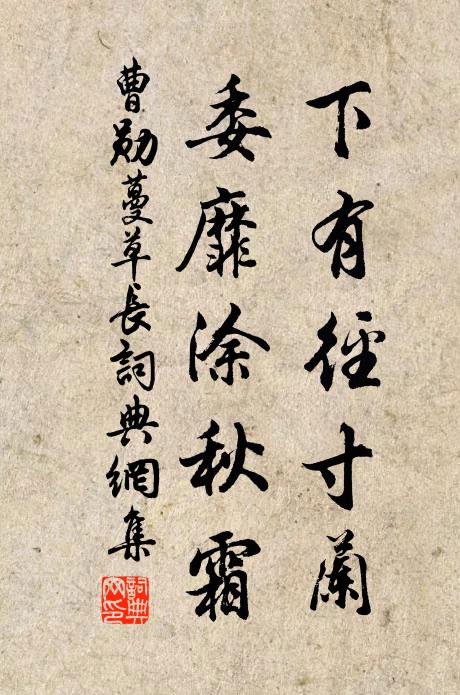 下有徑寸蘭
委靡涂秋霜
曹勛蔓草長詞典網集
詞典網印